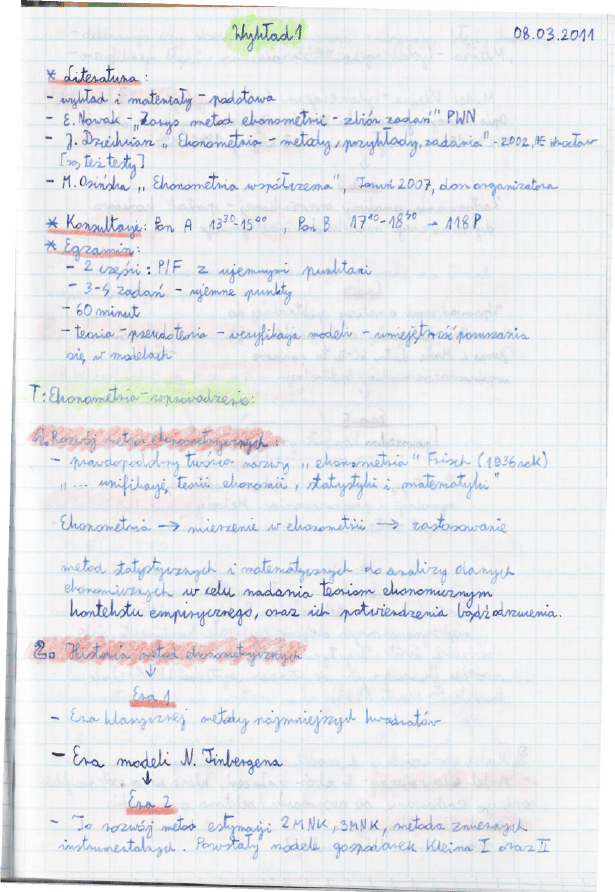 Wykład 1 08.03.2011
* Literatura:
- wykład i materiały - podstawa
- E. Nowak - „Zarys metod ekonometrii - zbiór zadań" PWN
- J. Dziechciarz „Ekonometria - metody, przykłady, zadania" - 2002, AE Wrocław
[są też testy]
- M. Osińska „Ekonometria współczesna", Toruń 2007, dom organizatora
* Konsultacje: Pon A 13³⁰-15⁰⁰ , Pon B 17¹⁰-18⁵⁰ → 118 P
* Egzamin:
- 2 części: P/F z ujemnymi punktami
- 3-5 zadań - ujemne punkty
- 60 minut
- teoria - pseudoteoria - weryfikacja modeli - umiejętność poruszania
się w modelach
T: Ekonometria - wprowadzenie:
1. Rozwój metod ekonometrycznych:
- prawdopodobny twórca nazwy „ekonometria" Frisch (1936 rok)
„... unifikację teorii ekonomii, statystyki i matematyki"
Ekonometria → mierzenie w ekonometrii → zastosowanie
metod statystycznych i matematycznych do analizy danych
ekonomicznych w celu nadania teoriom ekonomicznym
kontekstu empirycznego, oraz ich potwierdzenia bądź odrzucenia.
2. Historia metod ekonometrycznych
↓
Era 1
- Era klasycznej metody najmniejszych kwadratów
- Era modeli N. Tinbergena
↓
Era 2
- To rozwój metod estymacji 2MNK, 3MNK, metoda zmiennych
instrumentalnych. Powstały modele gospodarek Kleina I oraz II